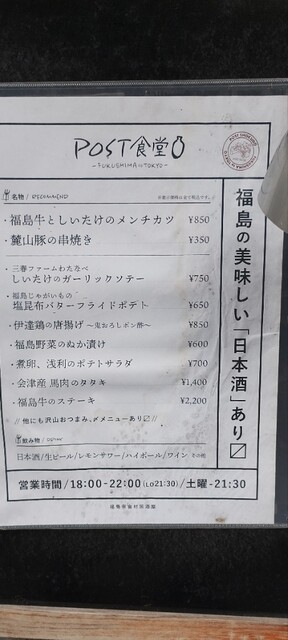 POST食堂
-FUKUSHIMA⇔TOKYO-
名物 / RECOMMEND
・福島牛としいたけのメンチカツ ¥850
・麓山豚の串焼き ¥350
三春ファームわたなべ
・しいたけのガーリックソテー ¥750
福島じゃがいもの
・塩昆布バターフライドポテト ¥650
・伊達鶏の唐揚げ 〜鬼おろしポン酢〜 ¥850
・福島野菜のぬか漬け ¥600
・煮卵、浅利のポテトサラダ ¥700
・会津産 馬肉のタタキ ¥1,400
・福島牛のステーキ ¥2,200
// 他にも沢山おつまみ、〆メニューあり〼 //
飲み物 / DRINK
日本酒/生ビール/レモンサワー/ハイボール/ワイン その他
福島の美味しい「日本酒」あり〼
営業時間/18:00-22:00(Lo21:30)/土曜-21:30